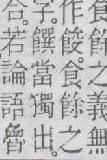 餘之義無
作餕。食餘之
字。饌當獨出。
合。若論語魯